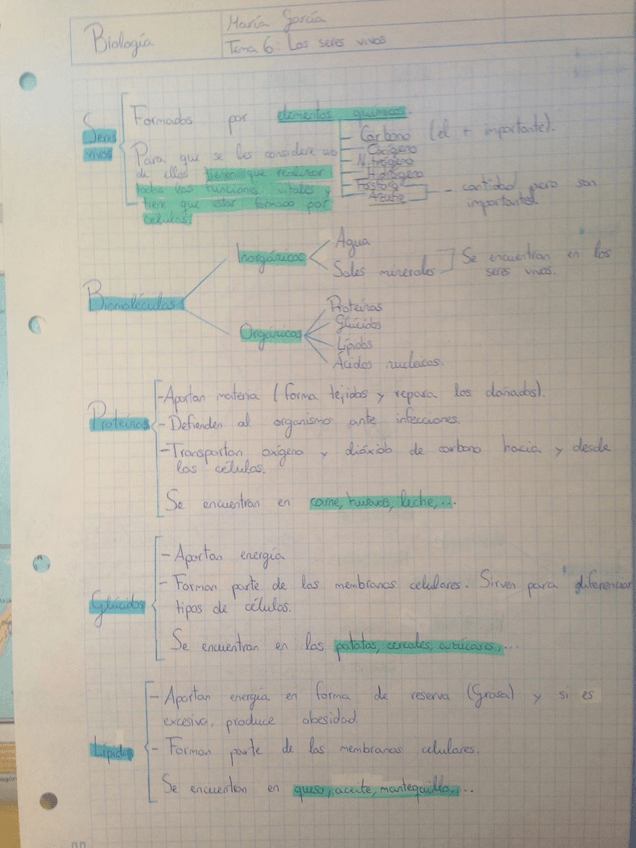 Biología
María García
Tema 6: Los seres vivos
Seres
vivos
Formados por elementos químicos.
Carbono (el + importante).
Oxígeno
Nitrógeno
Hidrógeno
Fósforo
Azufre
- cantidad pero son
importantes
Para que se les considere uno
de ellos tienen que realizar
todas las funciones vitales y
tiene que estar formado por
células.
Biomoléculas
Inorgánicos
Agua
Sales minerales
Se encuentran en los
seres vivos.
Orgánicos
Proteínas
Glúcidos
Lípidos
Ácidos nucleicos.
Proteínas
-Aportan materia (forma tejidos y repara los dañados).
- Defienden al organismo ante infecciones.
-Transportan oxígeno y dióxido de carbono hacia y desde
las células.
Se encuentran en carne, huevos, leche,...
Glúcidos
- Aportan energía
- Forman parte de las membranas celulares. Sirven para diferenciar
tipos de células.
Se encuentran en las patatas, cereales, azúcares,...
Lípidos
- Aportan energía en forma de reserva (Grasa) y si es
excesiva, produce obesidad.
- Forman parte de las membranas celulares.
Se encuentran en queso, aceite, mantequilla,...